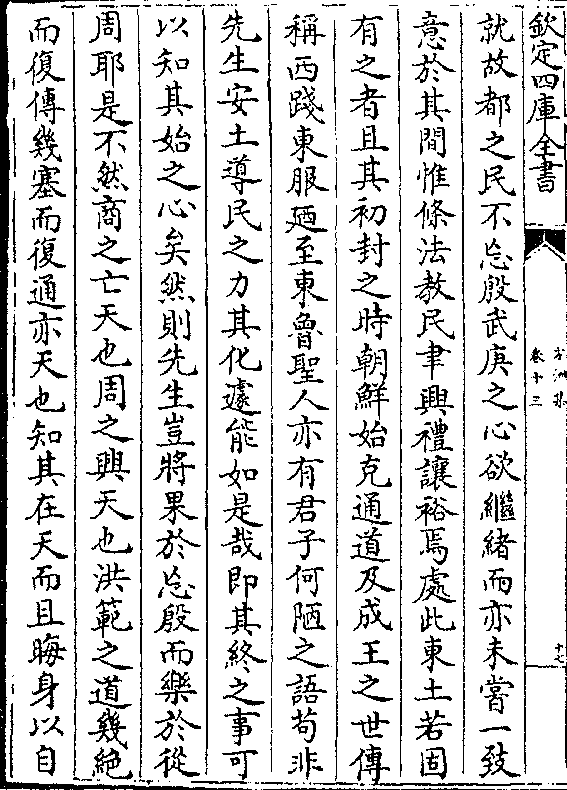 欽定四庫全書
卷十三
十七
就故都之民不忘殷武庚之心欲繼緒而亦未嘗一致
意於其間惟條法教民聿興禮讓裕焉處此東土若固
有之者且其初封之時朝鮮始克通道及成王之世傳
稱西踐東服廼至東魯聖人亦有君子何陋之語苟非
先生安土導民之力其化遽能如是哉即其終之事可
以知其始之心矣然則先生豈將果於忘殷而樂於從
周耶是不然商之亡天也周之興天也洪範之道幾絶
而復傳幾塞而復通亦天也知其在天而且晦身以自